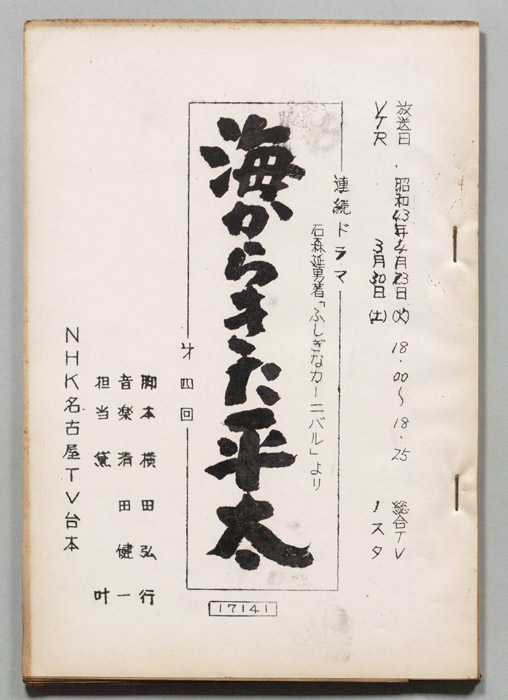 放送日 昭和43年4月23日(火) 18.00〜18.25 総合TV
VTR 3月30日(土) 1スタ
連続ドラマ
石森延男著「ふしぎなカーニバル」より
海からきた平太
才四回
脚本 横田弘行
音楽 清田健一
担当 黛 叶
NHK名古屋TV台本
17141